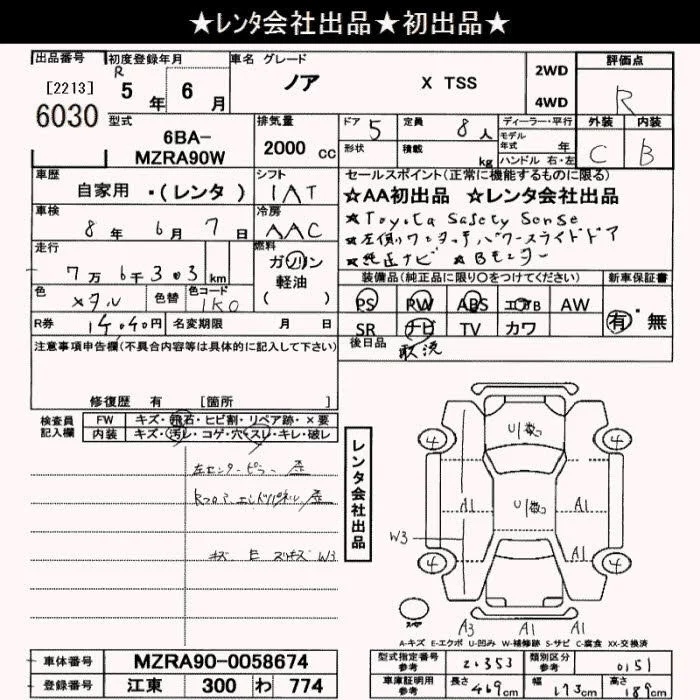 ★レンタ会社出品★初出品★
出品番号 初度登録年月 車名 グレード 評価点
[2213] R 5年 6月 ノア X TSS 2WD 4WD R
6030
型式 6BA-MZRA90W 排気量 2000 cc ドア 5 定員 8人 ディーラー・平行 外装 内装
形状 積載 kg モデル年式 年 ハンドル 右・左 C B
車歴 自家用 ・(レンタ) シフト IAT セールスポイント(正常に機能するものに限る)
★AA初出品 ★レンタ会社出品
車検 8年 6月 7日 冷房 AAC ★Toyota Safety Sense
★左側ワンタッチパワースライドドア
走行 7万6千303 km 燃料 ガソリン 軽油 ( ) ★純正ナビ ★Bモニター
色 メタル 色替 色コード 1K0 装備品(純正品に限り○をつけてください) 新車保証書
PS PW ABS エアB AW 有・無
R券 円 名変期限 月 日 SR ナビ TV カワ
注意事項申告欄(不具合内容等は具体的に記入して下さい) 後日品 取説
修復歴 有 [箇所 ]
検査員記入欄 FW キズ・飛石・ヒビ割・リペア跡・×要
内装 キズ・汚レ・コゲ・穴・スレ・キレ・破レ
左センターピラー 歪
Rフロア エンドパネル 歪
キズ E W3
レンタ会社出品
U1数
4 4
A1 U1数 A1
W3
4 4
A1 A1
スペア
A3 A1 A1
A-キズ E-エクボ U-凹み W-補修跡 S-サビ C-腐食 XX-交換済
車体番号 MZRA90-0058674 型式指定番号参考 20353 類別区分参考 0151
登録番号 江東 300 わ 774 車庫証明用参考 長さ 469cm 幅 173cm 高さ 189cm